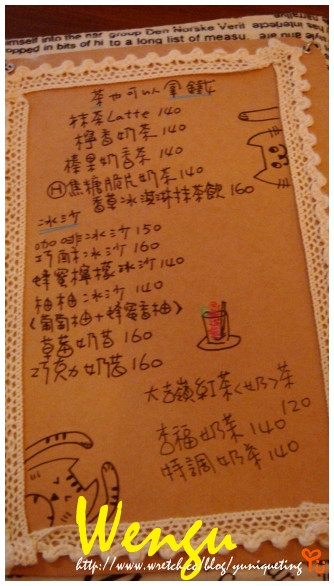 imself into the nar group Den Norske Verit
opped in bits of hi to a long list of measu
茶也可以拿鐵
抹茶Latte 140
檸香奶茶 140
榛果奶香茶 140
H焦糖脆片奶茶 140
香草冰淇淋抹茶飲 160
冰沙
咖啡冰沙 150
巧酥冰沙 160
蜂蜜檸檬冰沙 140
柚柚冰沙 140
(葡萄柚+蜂蜜香柚)
草莓奶昔 160
巧克力奶昔 160
大吉嶺紅茶(奶)茶
120
幸福奶茶 140
特調奶茶 140
Wengu
http://www.wretch.cc/blog/yuniqueting